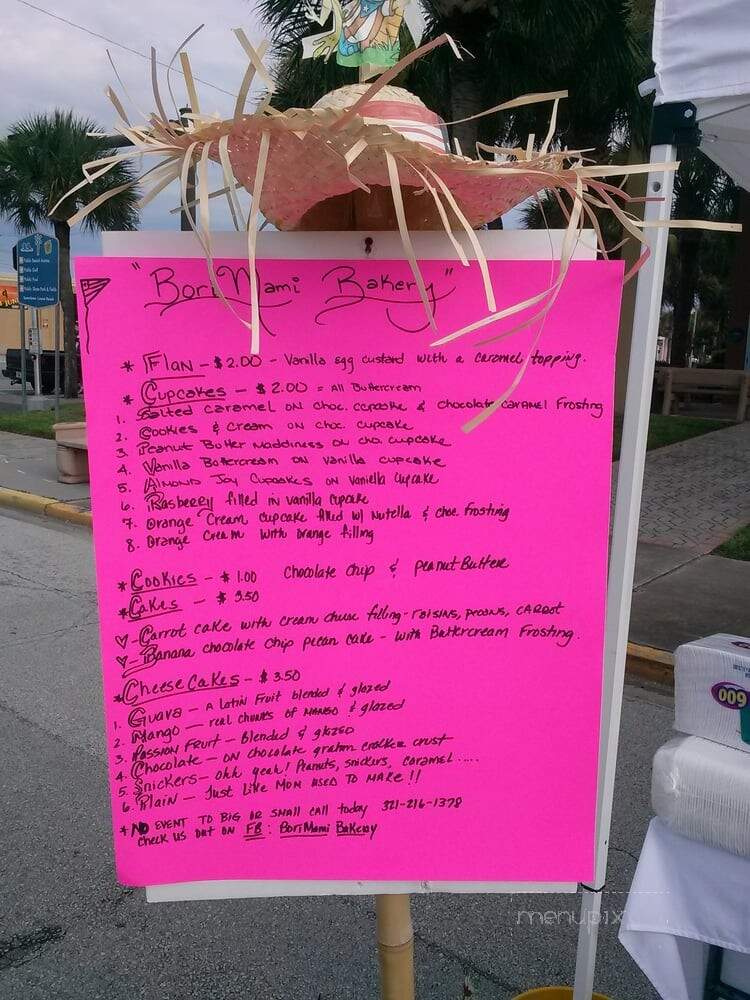 "BoriMami Bakery"
* Flan - $2.00 - Vanilla egg custard with a caramel topping.
* Cupcakes - $2.00 = All Buttercream
1. Salted caramel on choc. cupcake & chocolate caramel frosting
2. Cookies & cream on choc. cupcake
3. Peanut Butter maddiness on cho. cupcake
4. Vanilla Buttercream on vanilla cupcake
5. Almond Joy Cupcakes on vaniella cupcake
6. Rasbeery filled in vanilla cupcake
7. Orange Cream cupcake filled w/ Nutella & choc. frosting
8. Orange Cream with orange filling
* Cookies - $1.00 Chocolate chip & peanut Butter
* Cakes - $3.50
- Carrot cake with cream cheese filling - raisins, pecans, carrot
- Banana chocolate chip pecan cake - with Buttercream Frosting.
* CheeseCakes - $3.50
1. Guava - a latin fruit blended & glazed
2. Mango - real chunks of mango & glazed
3. Passion Fruit - Blended & glazed
4. Chocolate - on chocolate graham cracker crust
5. Snickers - ohh yeah! Peanuts, snickers, caramel.....
6. Plain - Just like Mom used to make!!
* No event to big or small call today 321-216-1378
check us out on FB: BoriMami Bakery
009
menupix